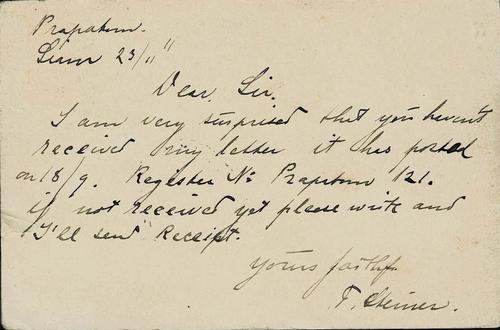 Prapatom.
Siam 23/11"
Dear, Sir.
I am very surprised that you havent
received my letter it has posted
on 18/9. Register No Prapatom 121.
if not received yet please write and
I'll send Receipt.
Yours faithf.
T. Steiner.